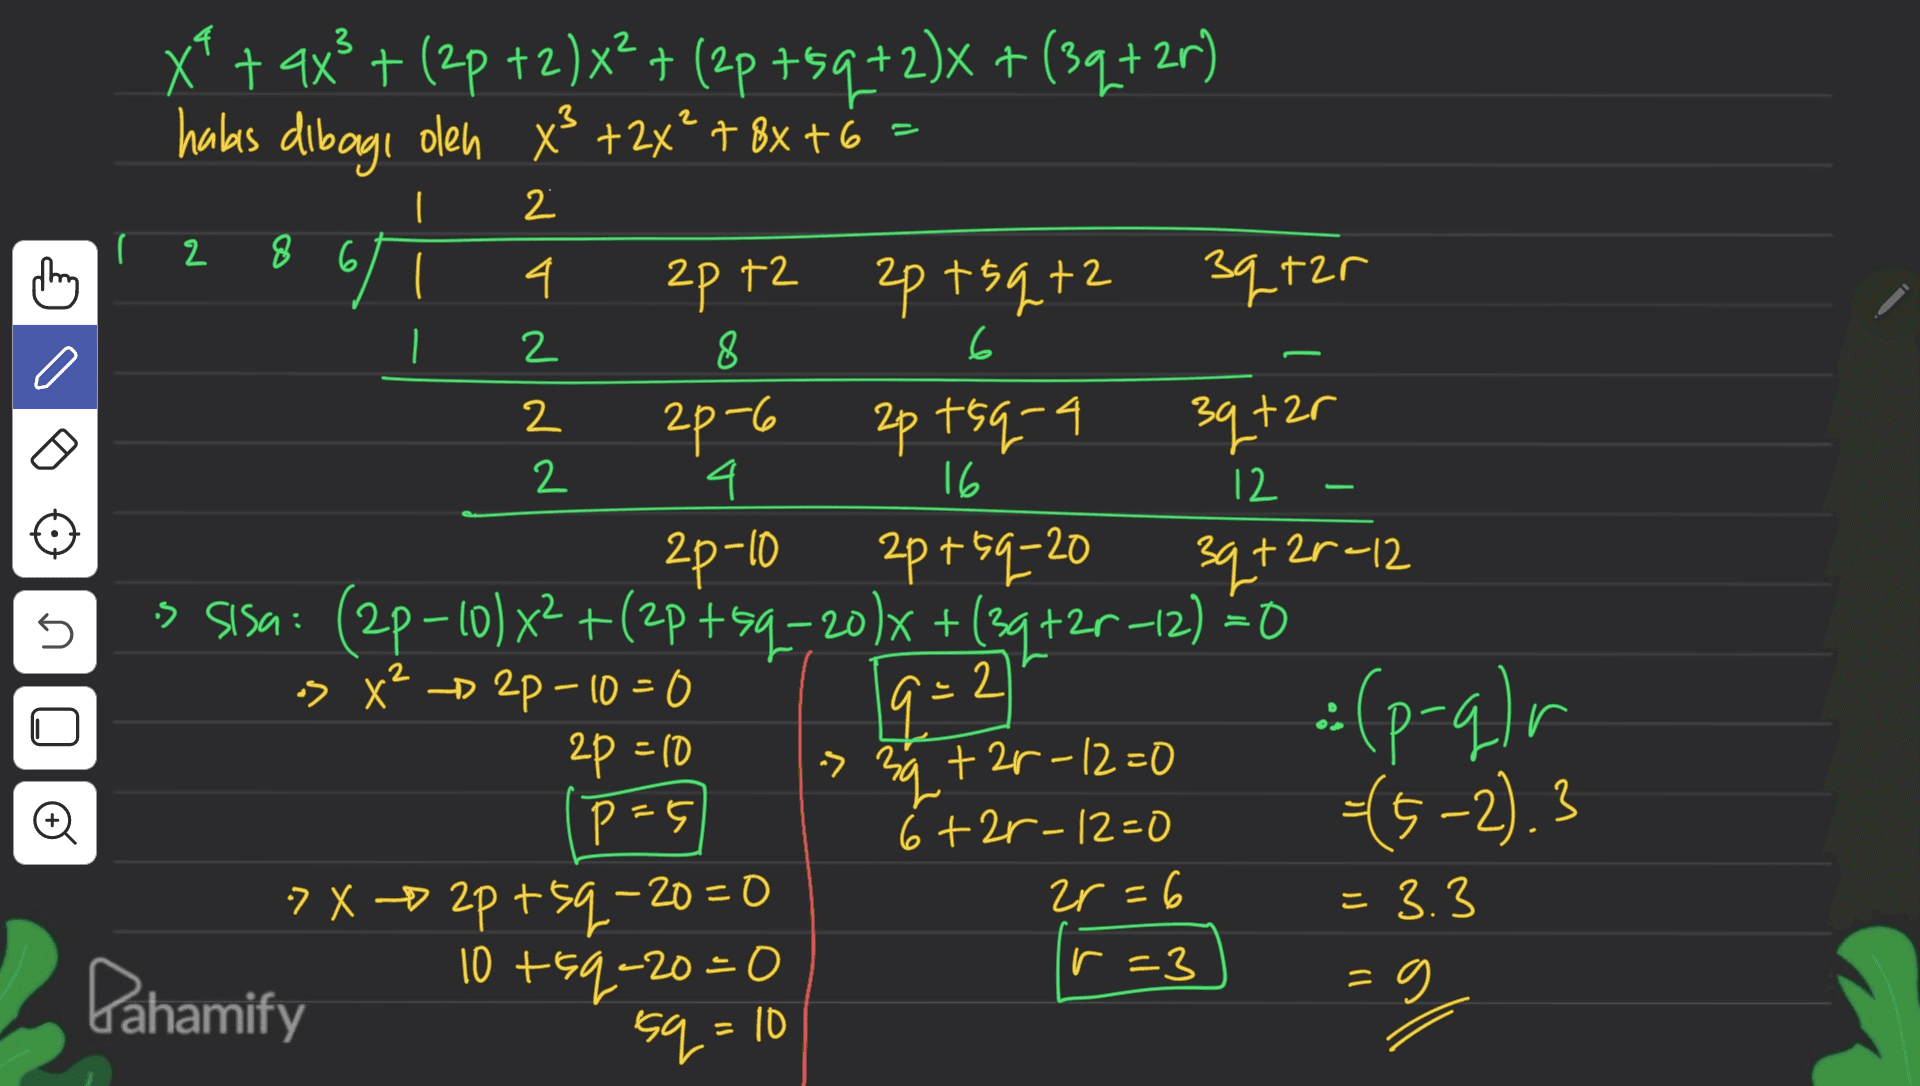 x⁴ + 4x³ + (2p + 2)x² + (2p + 5q + 2)x + (3q + 2r)
habis dibagi oleh x³ + 2x² + 8x + 6 =
1 2
1 2 8 6 / 1 4 2p + 2 2p + 5q + 2 3q + 2r
1 2 8 6 –
2 2p – 6 2p + 5q – 4 3q + 2r
2 4 16 12 –
2p – 10 2p + 5q – 20 3q + 2r – 12
:> sisa : (2p – 10)x² + (2p + 5q – 20)x + (3q + 2r – 12) = 0
:> x² → 2p – 10 = 0
2p = 10
p = 5
:> x → 2p + 5q – 20 = 0
10 + 5q – 20 = 0
5q = 10
q = 2
:> 3q + 2r – 12 = 0
6 + 2r – 12 = 0
2r = 6
r = 3
∴ (p – q) r
= (5 – 2) . 3
= 3 . 3
= 9
Pahamify